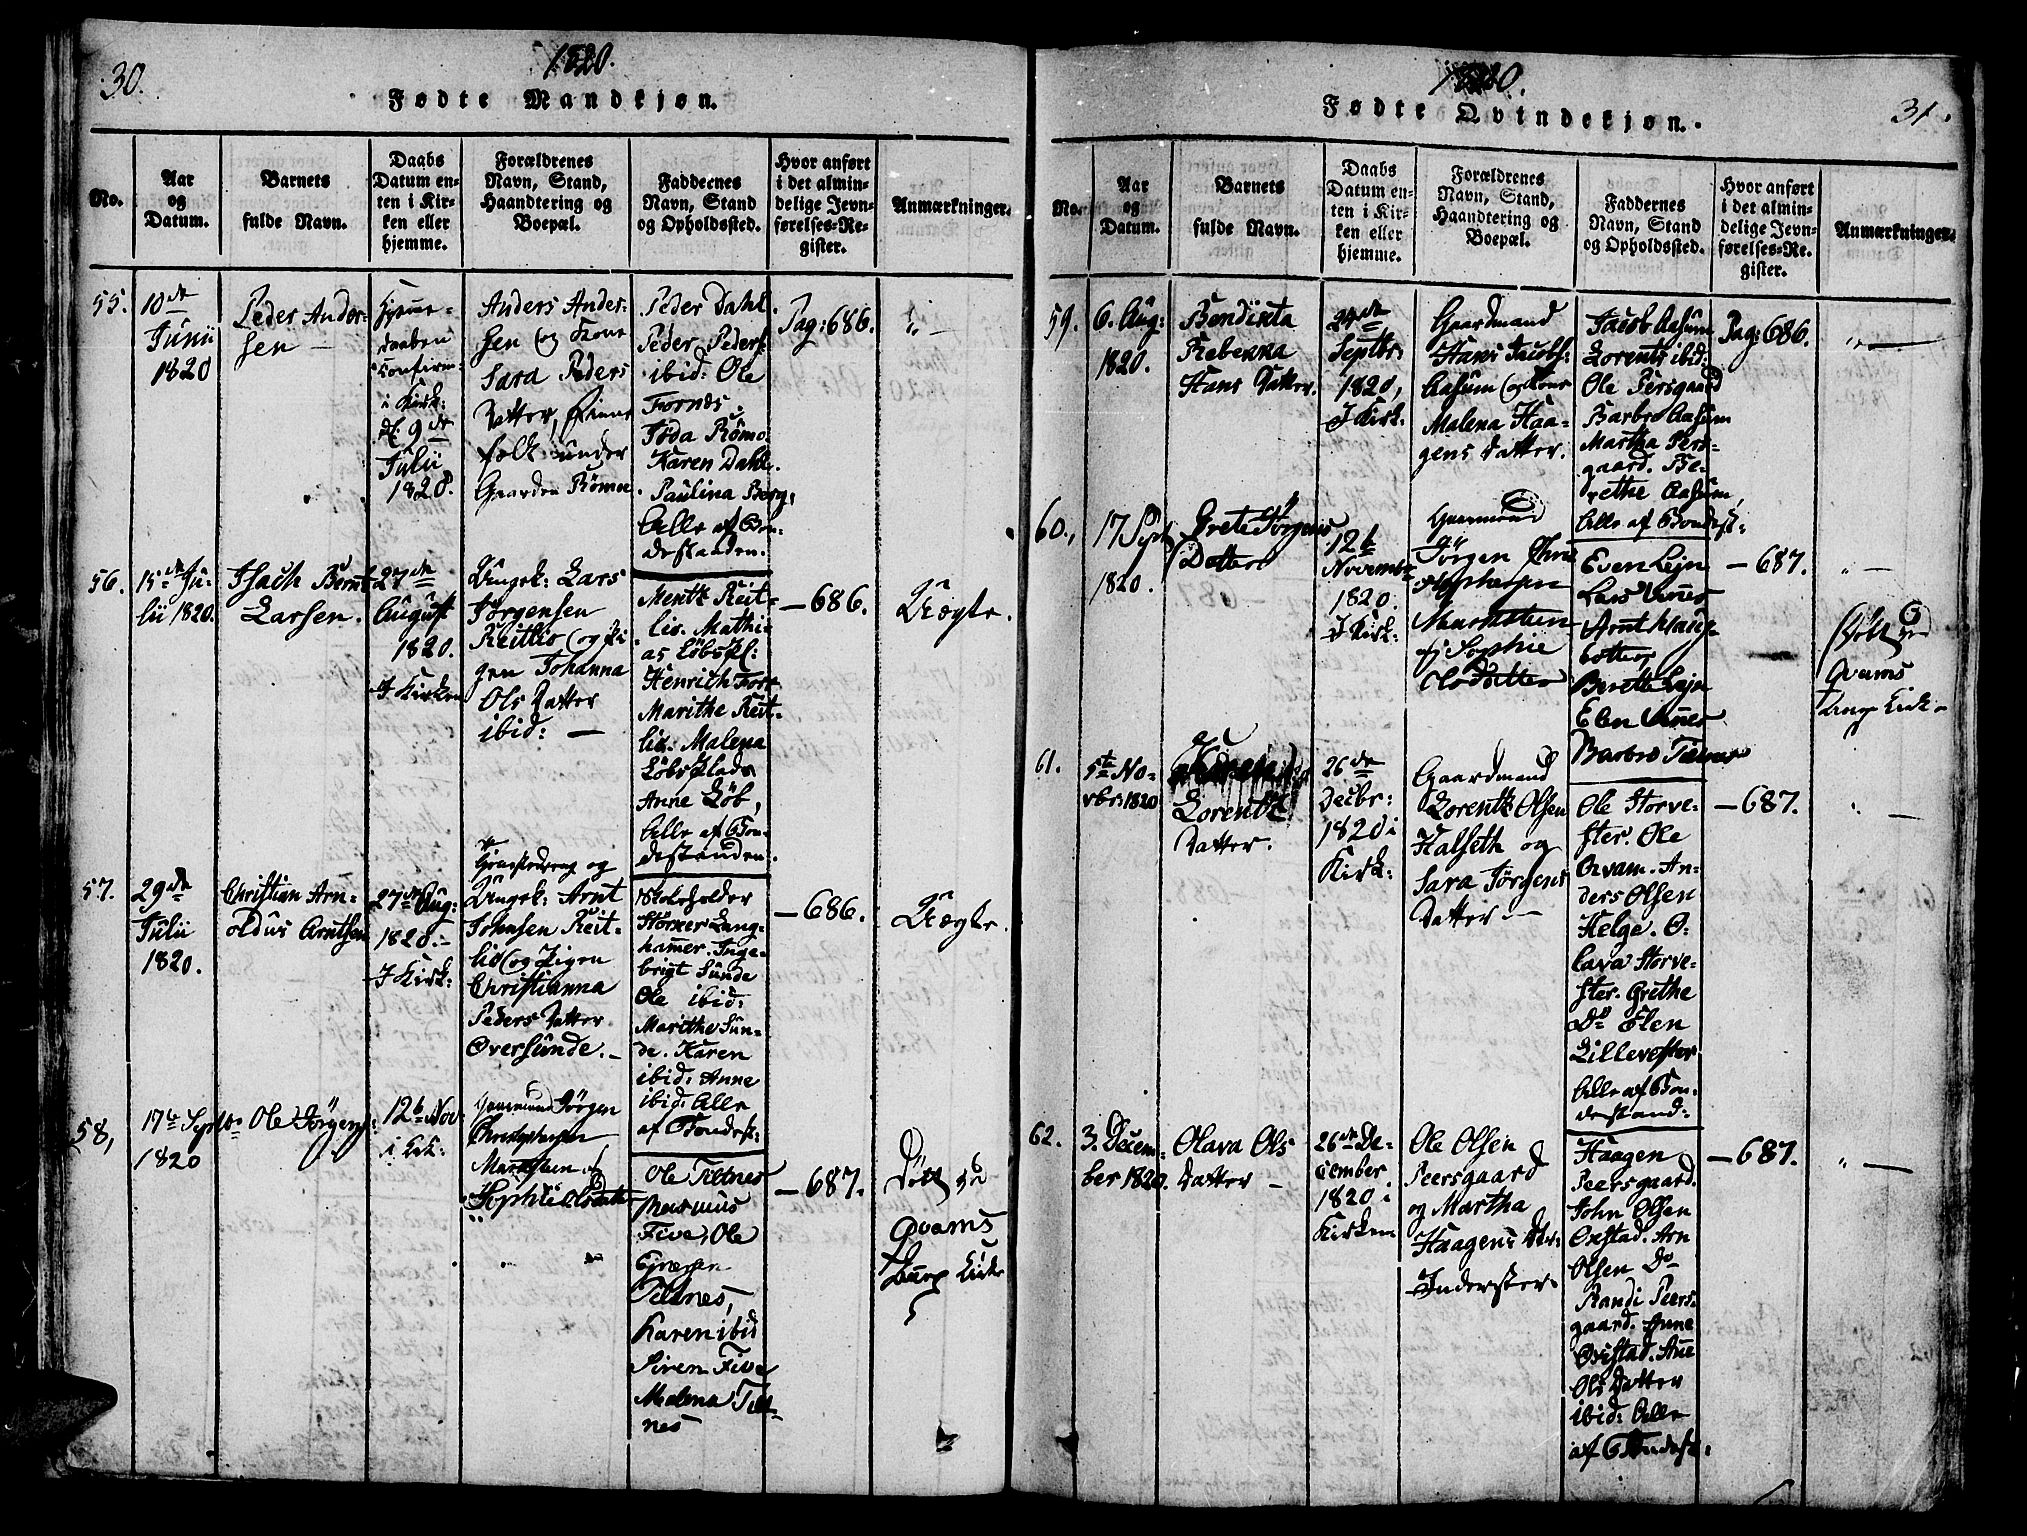 30.
1820.
Fødte Mandkjøn.
No.
Aar
og
Datum.
Barnets
fulde Navn.
Daabs
Datum en-
ten i Kir-
ken eller
hjemme.
Forældrenes
Navn, Stand,
Haandtering og
Boepæl.
Faddernes
Navn, Stand
og Opholdssted.
Hvor anført
i det almin-
delige Jevn-
førelses-Re-
gister.
Anmærkninger.
55.
10de
Junii
1820
Peder Ander-
sen —
Hjemme-
daaben
Confirm:
i Kirk:
d. 9de
Julii
1820.
Anders Ander-
sen og Kone
Sara Peders
Datter, Finne
folk under
Gaarden Römoe
Peder Dahl.
Peder Peders:
ibid: Ole
Fornes
Toda Römo.
Karen Dahl.
Paulina Berg,
Alle af Bon-
destanden.
Pag: 686.
56.
15de Ju-
lii 1820.
Isach Bernt
Larsen.
27de
August
1820.
I Kirken
Ungek: Lars
Jörgensen
Reitlio og Pi
gen Johanna
Ols Datter
ibid: —
Mentz Reit-
lio. Mathi-
as Löbspl:
Henrich Fort
Marithe Reit-
lio. Malena
Löbsplads
Anne Löb,
Alle af Bon-
destanden.
—686.
Uægte.
57.
29de
Julii
1820.
Christian Arn-
oldus Arntsen
27de Aug:
1820.—
I Kirk:
og
Ungek: Arnt
Johnsen Reit-
lio og Pigen
Christianna
Peders Datter
Oversunde.—
Skoleholder
Störker Lang-
hammer. Inge-
brigt Sunde
Ole ibid:
Marithe Sun-
de. Karen
ibid: Anne
ibid: Alle
af Bondest:
—686.
Uægte.
58,
17de Septbr
1820
Ole Jörgens:
12te Nov
i Kirk:
Gaarmand Jörgen
Christophersen
Marksteen og
Sophie Olsdatter
Ole Tiltnes
Rasmus
Five, Ole
Ejnesen
Tiltnes,
Karen ibid
Siren Five
Malena Tilt-
nes
—687.
Döbt ved
Qvams
Kirke
1820.
Fødte Qvindekjøn.
31.
No.
Aar
og
Datum.
Barnets
fulde Navn.
Daabs
Datum en-
ten i Kir-
ken eller
hjemme.
Forældrenes
Navn, Stand,
Haandtering og
Boepæl.
Faddernes
Navn, Stand
og Opholdssted.
Hvor anført
i det almin-
delige Jevn-
førelses-Re-
gister.
Anmærkninger.
59.
6. Aug:
1820.
Bendixta
Rebekka
Hans Datter.
24de
Septbr:
1820,
I Kirk:
Gaardmand
Hans Jacobs:
Aasum og Kone
Malena Haa-
gens Datter.
Jacob Aasum
Lorents ibid:
Ole Persgaard
Barbro Aasum
Martha Pers-
gaard. Be-
rethe Aasum,
Alle af Bondest:
Pag: 686.
60.,
17 Sept
1820.
Grete Jörgens
Datter
12te
Novembr
1820.
I Kirk:
Gaarmand
Jörgen Chri
stophersen
Marksteen
og Sophie
Olsdatter
Even Lejn
Lars Vines
Arnt
Berette Lejn
Elen Vines
Barbro Tilnes
—687.
Döbt ved
Qvams
Kirke
61.
5te No-
vbr: 1820
Lorentz
Datter.
26de
Decbr:
1820 i
Kirk:
Gaardmand
Lorentz Olsen
Halseth og
Sara Jörgens
Datter —
Ole Storve-
ster. Ole
Qvam. An-
ders Olsen
Helge. O-
lava Storve-
ster. Grethe
Do Elen
Lillevester
Alle af Bon-
destand:
—687.
62.
3. Decem-
ber 1820.
Olava Ols
Datter —
26de De-
cember
1820 i
Kirken
Ole Olsen
Peersgaard
og Martha
Haagens Dtr:
Inderster
Haagen
Peersgaard.
John Olsen
Oxstad. Arn
Olsen Do
Randi Peers-
gaard. Anne
Oxstad. Ane
Ols Datter
ibid: Alle
af Bondest:
—687.